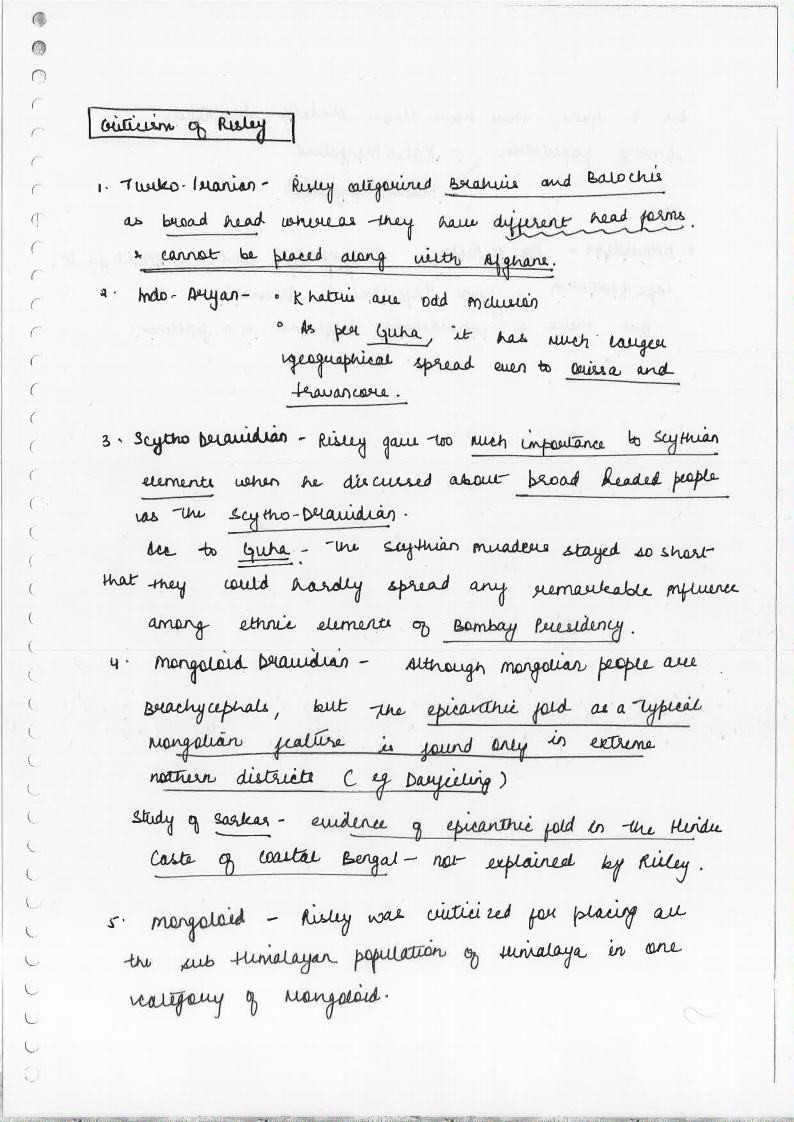 Criticism of Risley
1. Turko-Iranian - Risley categorized Brahuis and Balochis
as broad head whereas they have different head forms.
& cannot be placed along with Afghans.
2. Indo-Aryan - ° Khatris are odd inclusion
° As per Guha, it has much larger
geographical spread even to Orissa and
Travancore.
3. Scytho Dravidian - Risley gave too much importance to Scythian
elements when he discussed about broad headed people
as the Scytho-Dravidian.
Acc to Guha - The scythian invaders stayed so short
that they could hardly spread any remarkable influence
among ethnic elements of Bombay Presidency.
4. Mongoloid Dravidian - Although mongolian people are
Brachycephals, but the epicanthic fold as a typical
Mongolian feature is found only in extreme
nothern districts (eg Darjeeling)
Study of Sarkar - evidence of epicanthic fold in the Hindu
Caste of coastal Bengal - not explained by Risley.
5. Mongoloid - Risley was criticized for placing all
the sub Himalayan population of Himalaya in one
category of Mongoloid.